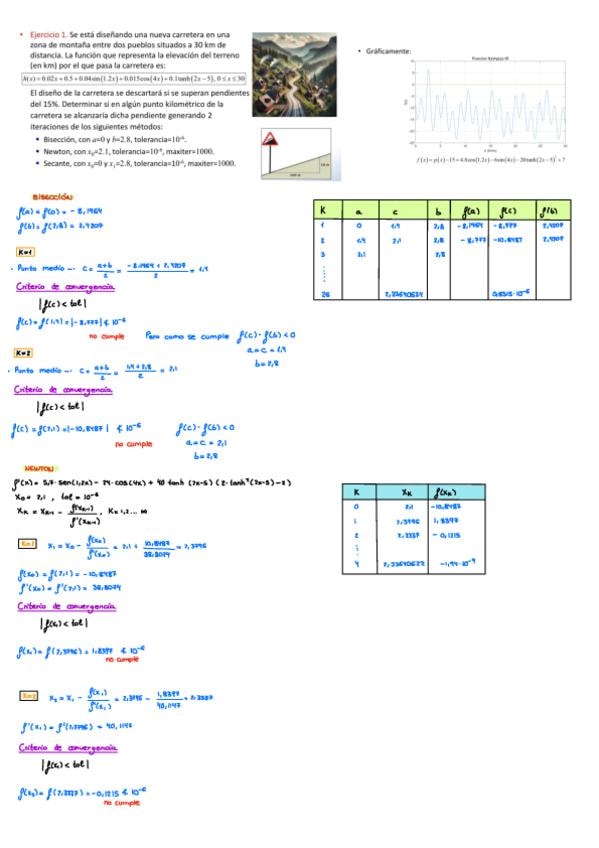 • Ejercicio 1. Se está diseñando una nueva carretera en una
zona de montaña entre dos pueblos situados a 30 km de
distancia. La función que representa la elevación del terreno
(en km) por el que pasa la carretera es:
h(x) = 0.02x + 0.5 + 0.04sin(1.2x) + 0.015cos(4x) + 0.1tanh(2x − 5), 0 ≤ x ≤ 30
El diseño de la carretera se descartará si se superan pendientes
del 15%. Determinar si en algún punto kilométrico de la
carretera se alcanzaría dicha pendiente generando 2
iteraciones de los siguientes métodos:
• Bisección, con a=0 y b=2.8, tolerancia=10⁻⁶.
• Newton, con x₀=2.1, tolerancia=10⁻⁶, maxiter=1000.
• Secante, con x₀=0 y x₁=2.8, tolerancia=10⁻⁶, maxiter=1000.
• Gráficamente:
BISECCIÓN
f(a) = f(0) = - 8,1964
f(b) = f(2,8) = 2,4207
K=1
• Punto medio → c = a+b/2 = -8,1964 + 2,4207/2 = 1,4
Criterio de convergencia
|f(c) < tol|
f(c) = f(1,4) = |-8,777| ≮ 10⁻⁶
no cumple
Pero como se cumple f(c) · f(b) < 0
a = c = 1,4
b = 2,8
K=2
• Punto medio → c = a+b/2 = 1,4+2,8/2 = 2,1
Criterio de convergencia
|f(c) < tol|
f(c) = f(2,1) = |-10,8487| ≮ 10⁻⁶
no cumple
f(c) · f(b) < 0
a = c = 2,1
b = 2,8
K a c b f(a) f(c) f(b)
1 0 1,4 2,8 -8,1964 -8,777 2,4207
2 1,4 2,1 2,8 -8,777 -10,8487 2,4207
3 2,1 2,8
26 2,33640634
NEWTON
x₀ = 2,1 , tol = 10⁻⁶
Xₖ = Xₖ₋₁ - f(Xₖ₋₁)/f'(Xₖ₋₁) , K=1,2... ∞
K=1
x₁ = x₀ - f(x₀)/f'(x₀) = 2,1 + 10,8487/38,8074 = 2,3796
f(x₀) = f(2,1) = -10,8487
f'(x₀) = f'(2,1) = 38,8074
Criterio de convergencia
|f(x₁) < tol|
f(x₁) = f(2,3796) = 1,8397 ≮ 10⁻⁶
no cumple
K=2
x₂ = x₁ - f(x₁)/f'(x₁) = 2,3796 - 1,8397/40,1147 = 2,3337
f'(x₁) = f'(2,3796) = 40,1147
Criterio de convergencia
|f(x₂) < tol|
f(x₂) = f(2,3337) = -0,1215 ≮ 10⁻⁶
no cumple
K Xₖ f(Xₖ)
0 2,1 -10,8487
1 2,3796 1,8397
2 2,3337 -0,1215
4 2,33640622